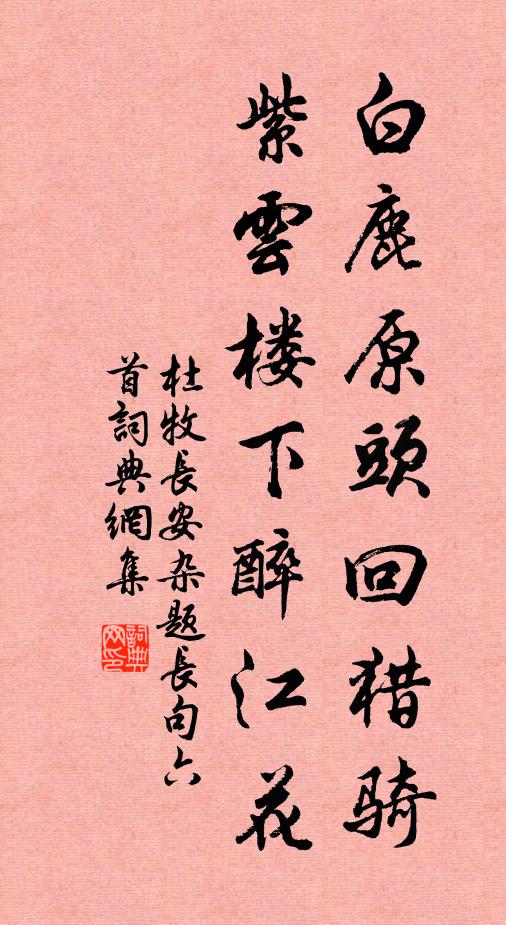 白鹿原頭回猎骑
紫雲楼下醉江花
杜牧长安杂题長句六
首詞典網集
詞典网印